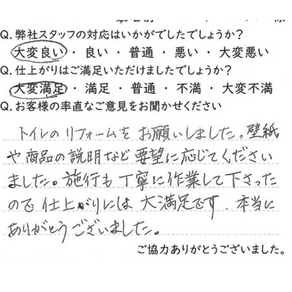 Q. 弊社スタッフの対応はいかがでしたでしょうか?
大変良い ・ 良い ・ 普通 ・ 悪い ・ 大変悪い
Q. 仕上がりはご満足いただけましたでしょうか?
大変満足 ・ 満足 ・ 普通 ・ 不満 ・ 大変不満
Q. お客様の率直なご意見をお聞かせください
トイレのリフォームをお願いしました。壁紙
や商品の説明など要望に応じてください
ました。施行も丁寧に作業して下さった
ので仕上がりには大満足です。本当に
ありがとうございました。
ご協力ありがとうございました。